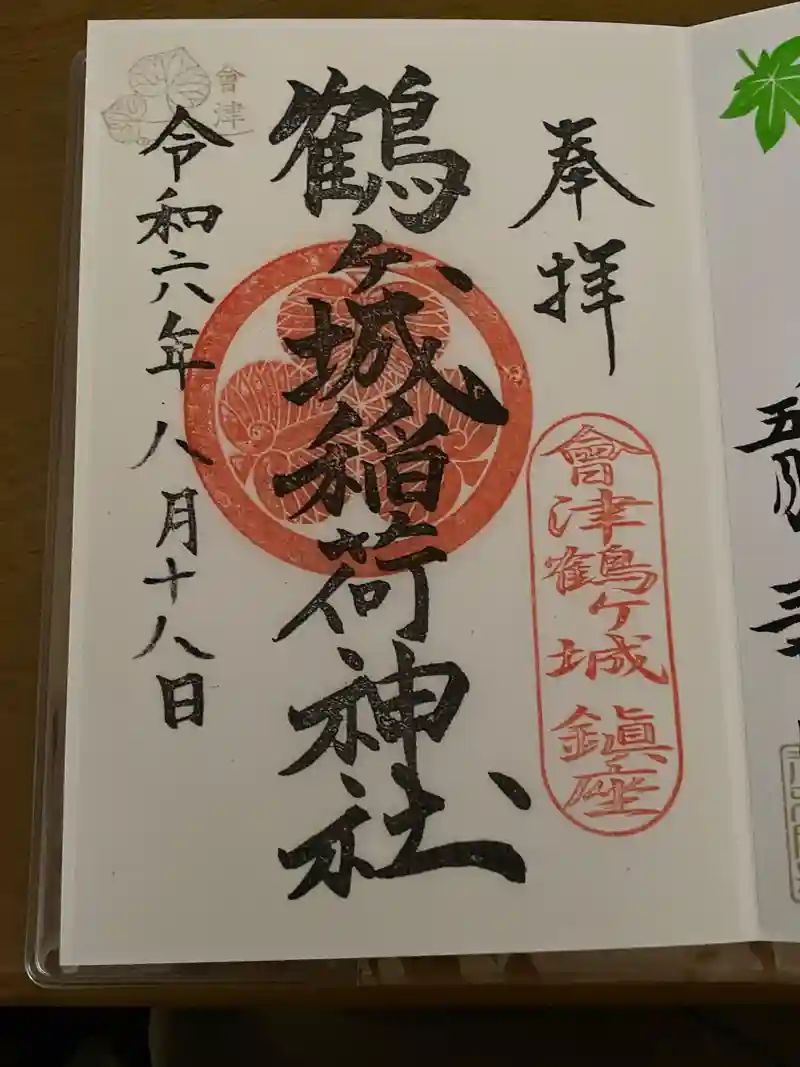 奉拝
會津鶴ヶ城鎮座
鶴ヶ城稲荷神社
令和六年八月十八日
會津